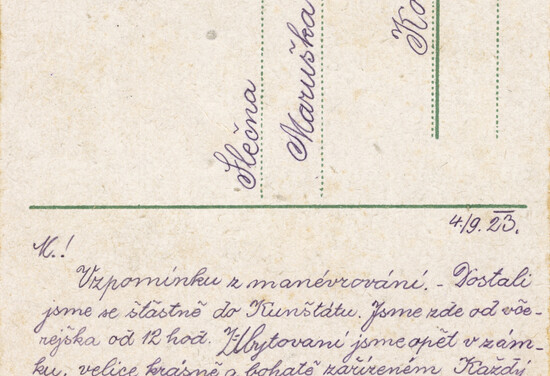 Slečna
Maruška
Ko
4/9. 23.
M.!
Vzpomínku z manévrování. - Dostali
jsme se šťastně do Kunštátu. Jsme zde od vče-
rejška od 12 hod. Ubytovaní jsme opět v zám-
ku, velice krásně a bohatě zařízeném Každý